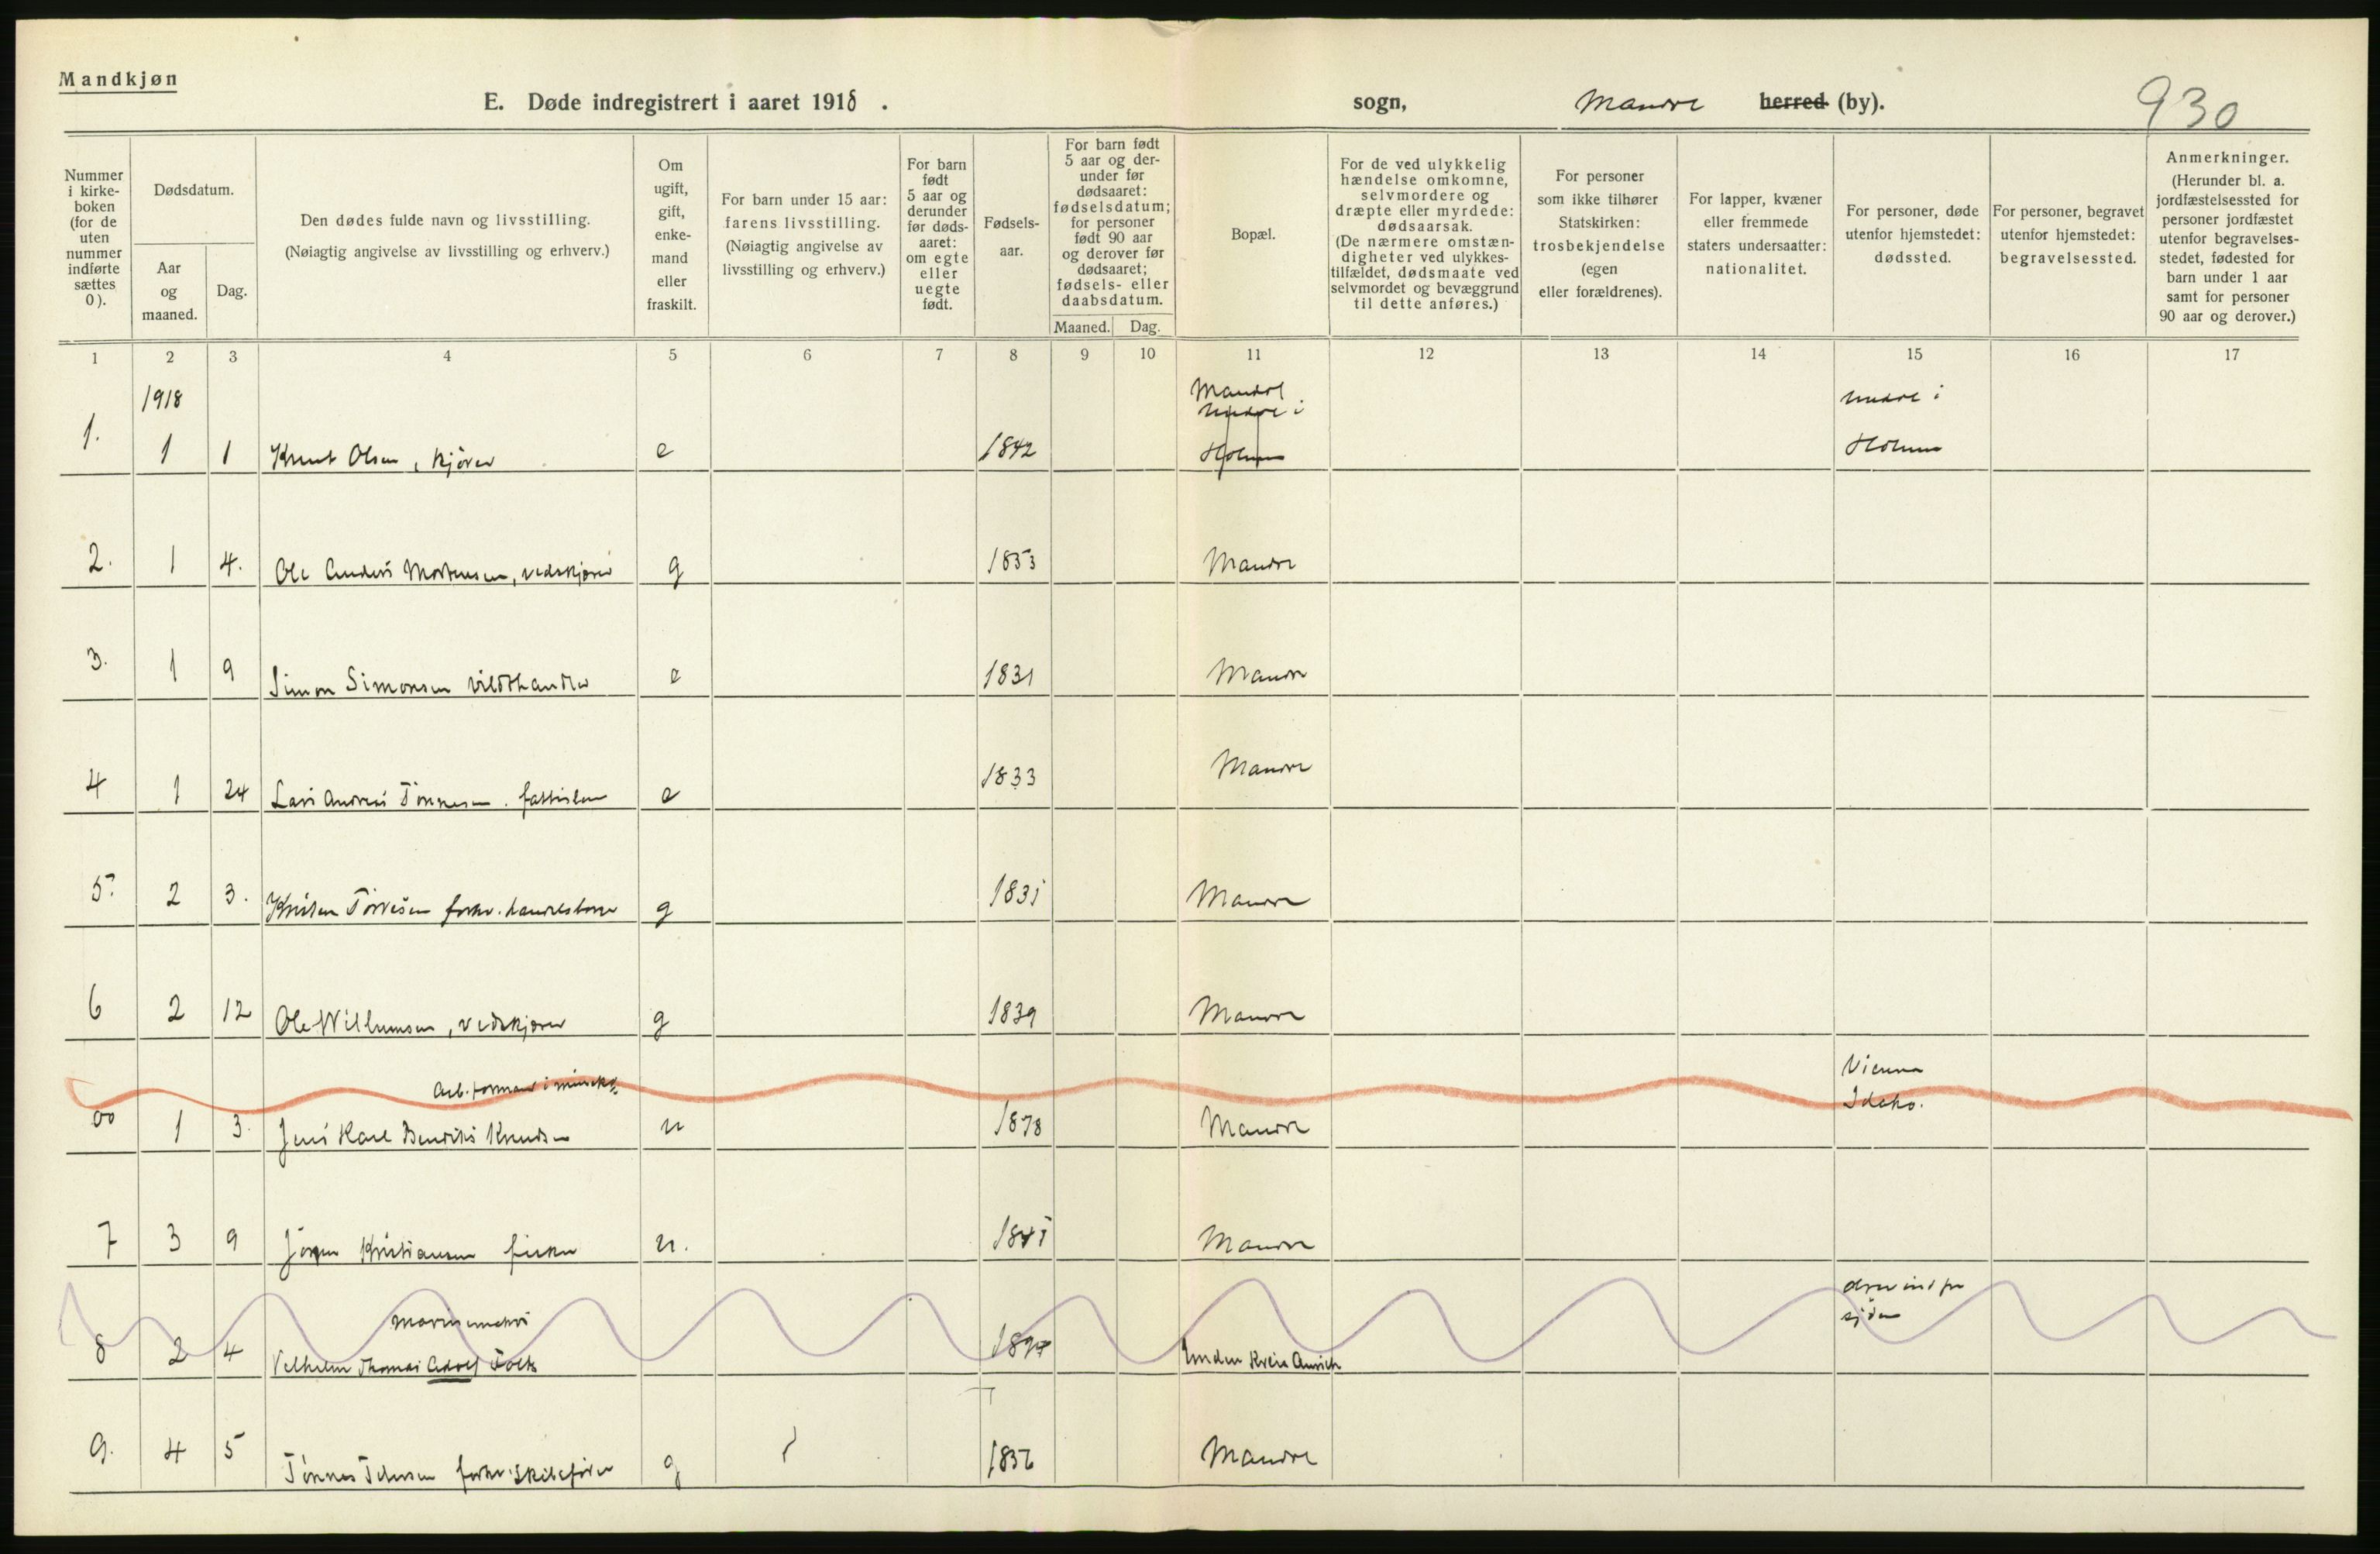 Mandkjøn
E. Døde indregistrert i aaret 1918 .
sogn, herred (by).
930
Nummer i kirke-boken (for de uten nummer indførte sættes 0).
Dødsdatum.
Aar og maaned.
Dag.
Den dødes fulde navn og livsstilling.
(Nøiagtig angivelse av livsstilling og erhverv.)
Om ugift, gift, enke-mand eller fraskilt.
For barn under 15 aar: farens livsstilling.
(Nøiagtig angivelse av livsstilling og erhverv.)
For barn født 5 aar og derunder før døds-aaret: om egte eller uegte født.
Fødsels-aar.
For barn født 5 aar og der-under før dødsaaret: fødselsdatum; for personer født 90 aar og derover før dødsaaret; fødsels- eller daabsdatum.
Maaned. Dag.
Bopæl.
For de ved ulykkelig hændelse omkomne, selvmordere og dræpte eller myrdede: dødsaarsak.
(De nærmere omstæn-digheter ved ulykkes-tilfældet, dødsmaate ved selvmordet og bevæggrund til dette anføres.)
For personer som ikke tilhører Statskirken: trosbekjendelse (egen eller forældrenes).
For lapper, kvæner eller fremmede staters undersaatter: nationalitet.
For personer, døde utenfor hjemstedet: dødssted.
For personer, begravet utenfor hjemstedet: begravelsessted.
Anmerkninger.
(Herunder bl. a. jordfæstelsessted for personer jordfæstet utenfor begravelses-stedet, fødested for barn under 1 aar samt for personer 90 aar og derover.)
1 2 3 4 5 6 7 8 9 10 11 12 13 14 15 16 17
1918
Mandal
1. 1 1 Knut Olsen, kjører e 1842 Holum Holum
2. 1 4. Ole Anders Mortensen, vedskjører g 1853 Mandal
3. 1 9 Simon Simonsen vildthandler e 1831 Mandal
4 1 24 Lars Andreas Tønnesen. fattiglem e 1833 Mandal
5. 2 3. Kristen Torvesen forhv. g Mandal
6 2 12 Ole Willumsen, vedskjører g 1839 Mandal
Arb. formand i
Vienna
Idaho.
00 1 3. Jens Karl Knudsen u 1878 Mandal
7 3 9 Jørgen Kristiansen fisker u. Mandal
drevet ind fra
sjøen
8 2 4 Vilhelm Thomas Adolf Emden Kreis Aurich
9. 4 5 Tønnes forhv. skibsfører g 1836 Mandal